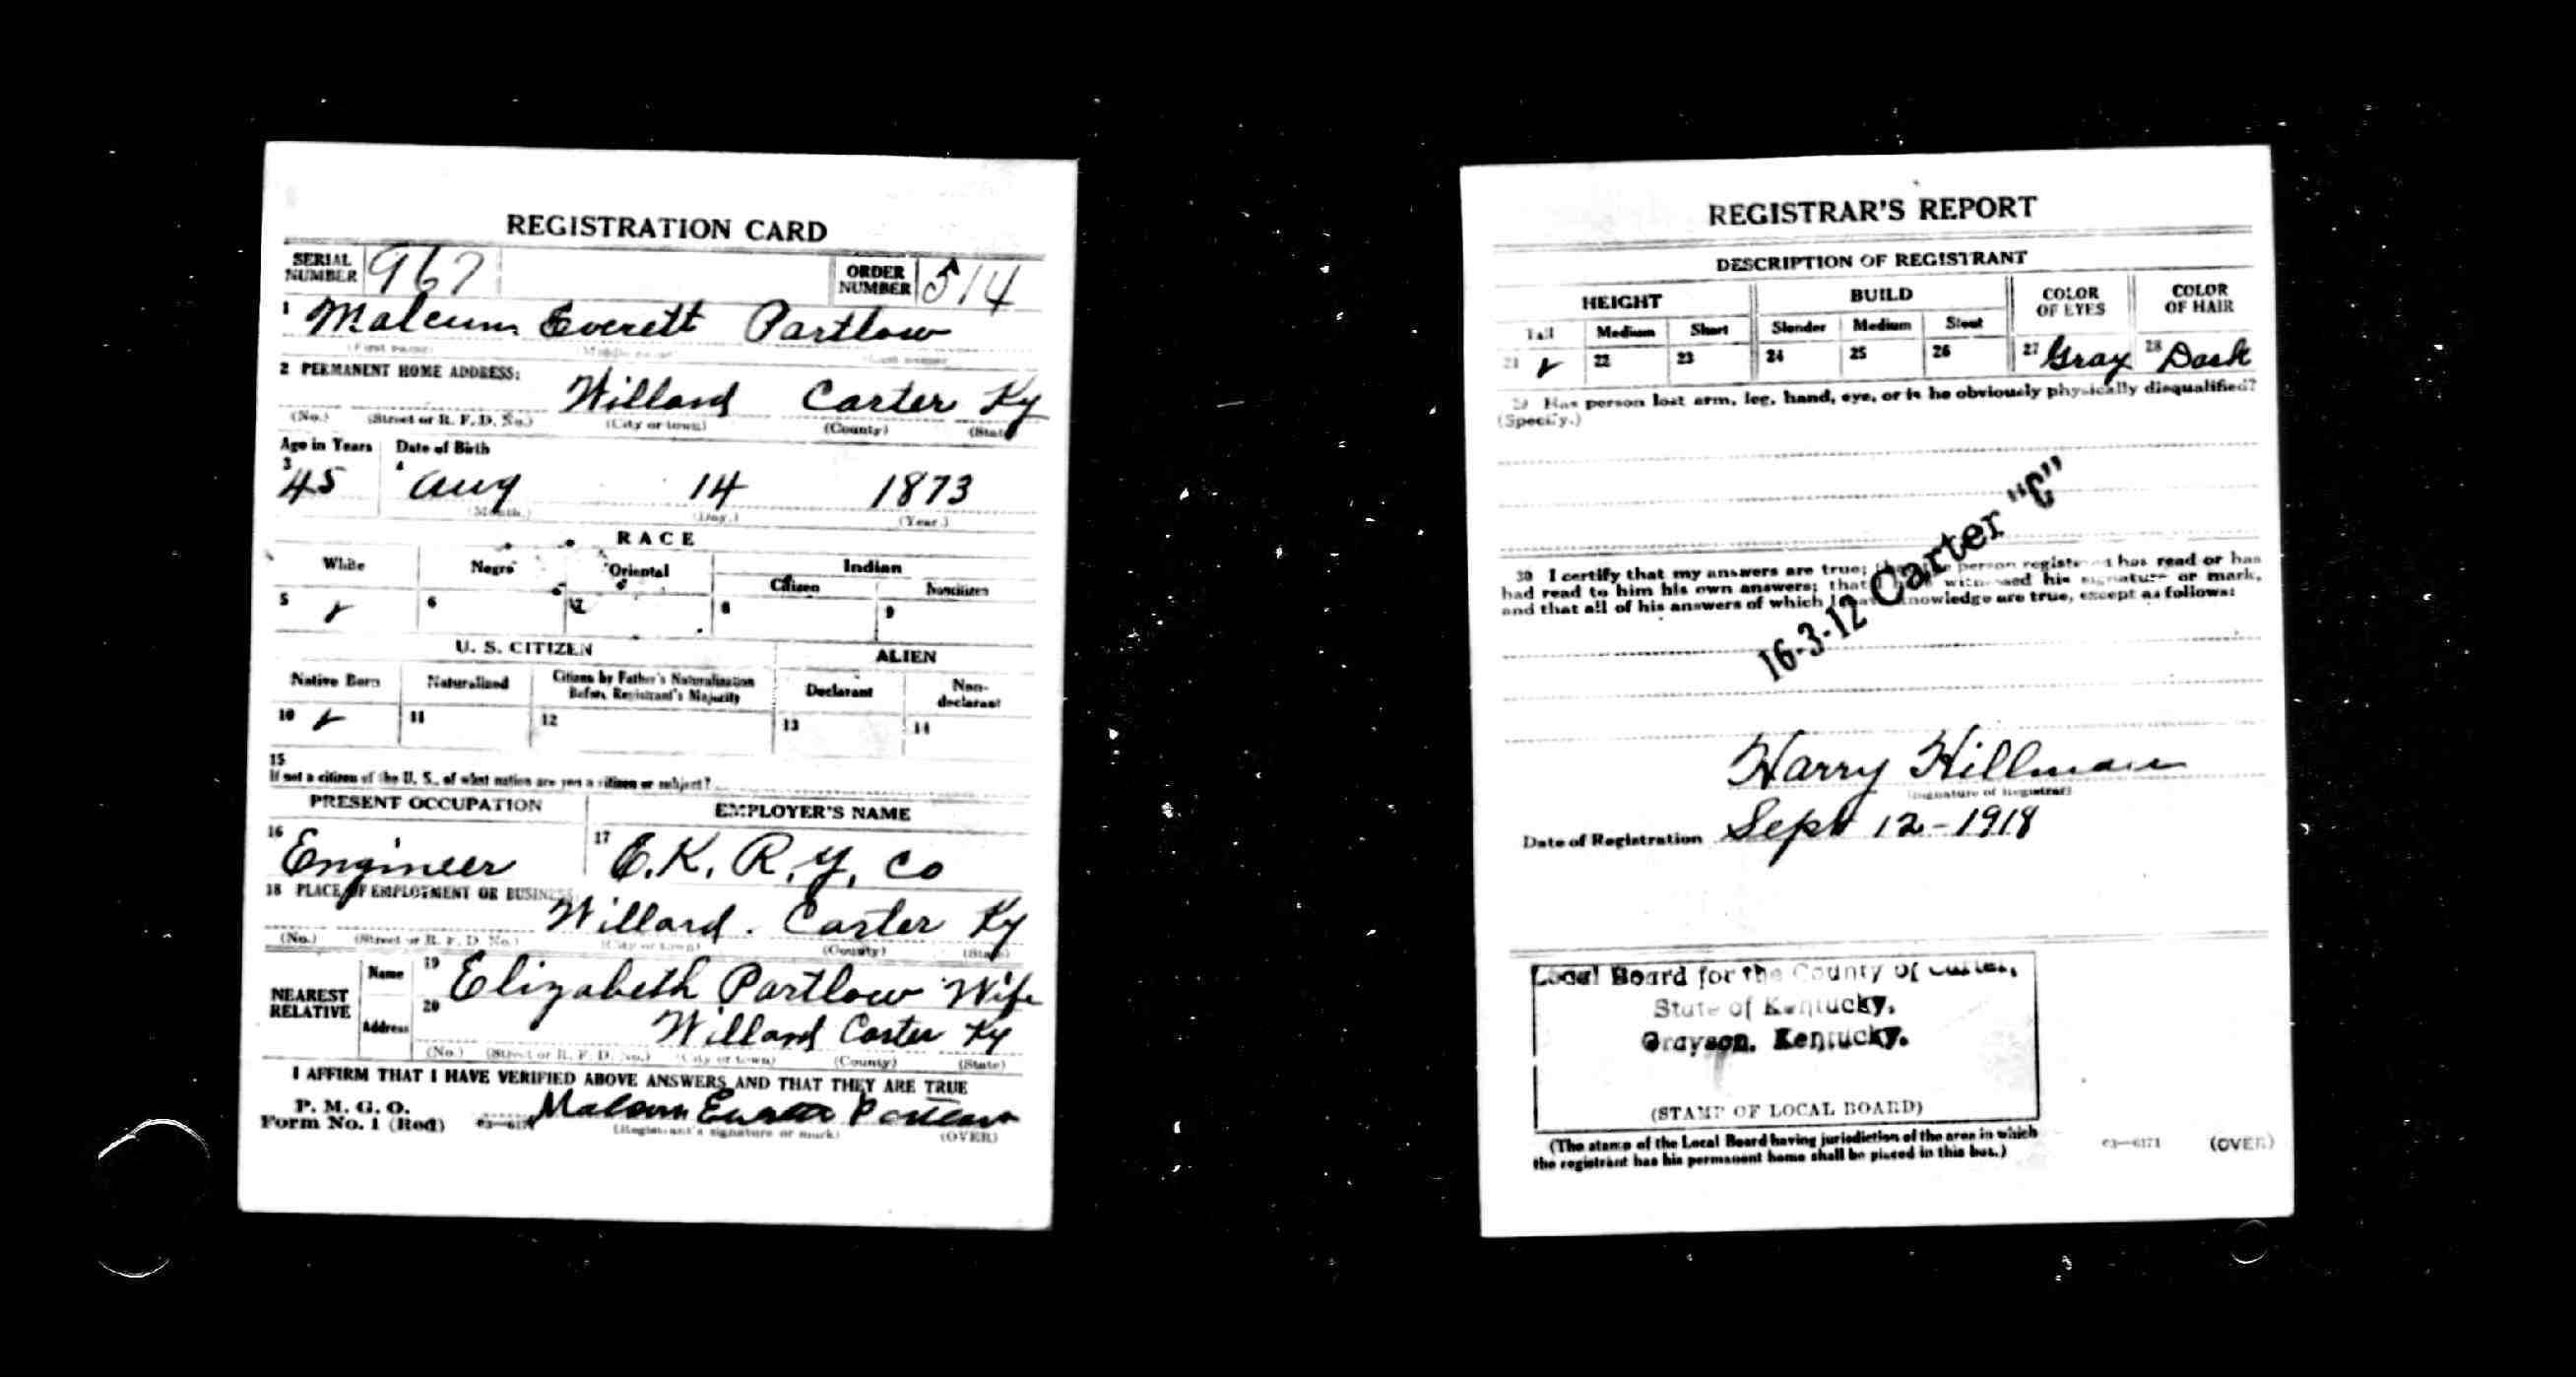 REGISTRATION CARD
SERIAL NUMBER 967 ORDER NUMBER 514
1 Malcum Everett Partlow
(First name) (Middle name) (Last name)
2 PERMANENT HOME ADDRESS: Willard Carter Ky
(No.) (Street or R. F. D. No.) (City or town) (County) (State)
Age in Years Date of Birth
3 45 4 Aug 14 1873
(Month.) (Day.) (Year.)
RACE
White Negro Oriental Indian
Citizen Noncitizen
5 ✓ 6 7 8 9
U. S. CITIZEN ALIEN
Native Born Naturalized Citizen by Father's Naturalization Before Registrant's Majority Declarant Non-declarant
10 ✓ 11 12 13 14
15
If not a citizen of the U. S., of what nation are you a citizen or subject?
PRESENT OCCUPATION EMPLOYER'S NAME
16 Engineer 17 E.K. R.y. Co
18 PLACE OF EMPLOYMENT OR BUSINESS: Willard. Carter Ky
(No.) (Street or R. F. D. No.) (City or town) (County) (State)
NEAREST RELATIVE
Name 19 Elizabeth Partlow Wife
Address 20 Willard Carter Ky
(No.) (Street or R. F. D. No.) (City or town) (County) (State)
I AFFIRM THAT I HAVE VERIFIED ABOVE ANSWERS AND THAT THEY ARE TRUE
P. M. G. O.
Form No. 1 (Red) Malcum Everett Partlow
(Registrant's signature or mark) (OVER)
REGISTRAR'S REPORT
DESCRIPTION OF REGISTRANT
HEIGHT BUILD COLOR OF EYES COLOR OF HAIR
Tall Medium Short Slender Medium Stout
21 ✓ 22 23 24 25 26 27 Gray 28 Dark
29 Has person lost arm, leg, hand, eye, or is he obviously physically disqualified?
(Specify.)
16-3-12 Carter "C"
30 I certify that my answers are true; person registered has read or has
had read to him his own answers; that witnessed his signature or mark,
and that all of his answers of which I have knowledge are true, except as follows:
Harry Hillman
(Signature of Registrar)
Date of Registration Sept 12-1918
Local Board for the County of Carter,
State of Kentucky,
Grayson, Kentucky.
(STAMP OF LOCAL BOARD)
(The stamp of the Local Board having jurisdiction of the area in which
the registrant has his permanent home shall be placed in this box.)
03—6171 (OVER)